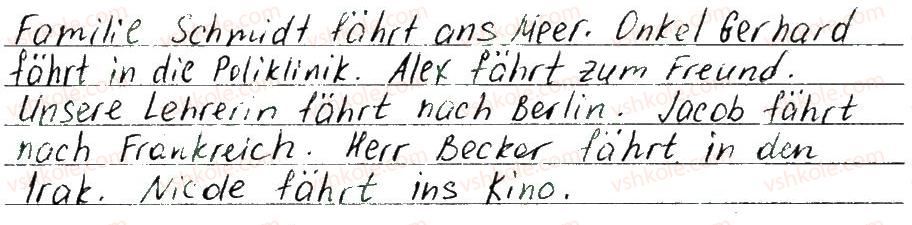 Familie Schmidt fährt ans Meer. Onkel Gerhard
fährt in die Poliklinik. Alex fährt zum Freund.
Unsere Lehrerin fährt nach Berlin. Jacob fährt
nach Frankreich. Herr Becker fährt in den
Irak. Nicole fährt ins Kino.